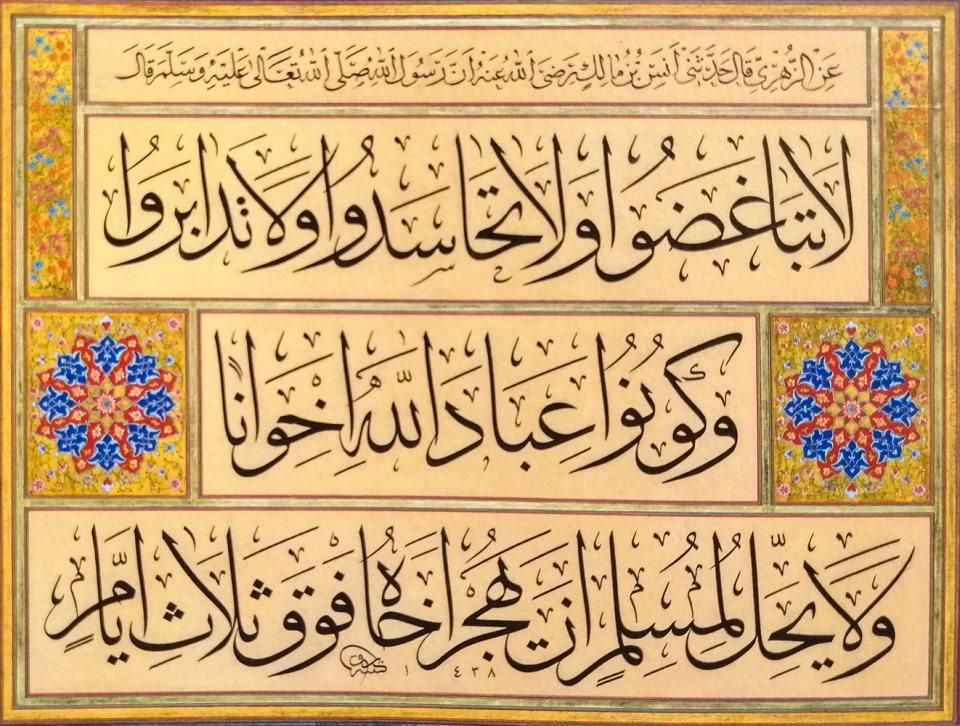 عَنِ الزُّهْرِيِّ قَالَ حَدَّثَنِي أَنَسُ بْنُ مَالِكٍ رَضِيَ اللهُ عَنْهُ اَنَّ رَسُولَ اللهِ صَلَّى اللهُ تَعَالٰى عَلَيْهِ وَسَلَّمَ قَالَ
لَا تَبَاغَضُوا وَلَا تَحَاسَدُوا وَلَا تَدَابَرُوا
وَكُونُوا عِبَادَ اللهِ اِخْوَانًا
وَلَا يَحِلُّ لِمُسْلِمٍ اَنْ يَهْجُرَ اَخَاهُ فَوْقَ ثَلَاثِ اَيَّامٍ
١٤٣٨